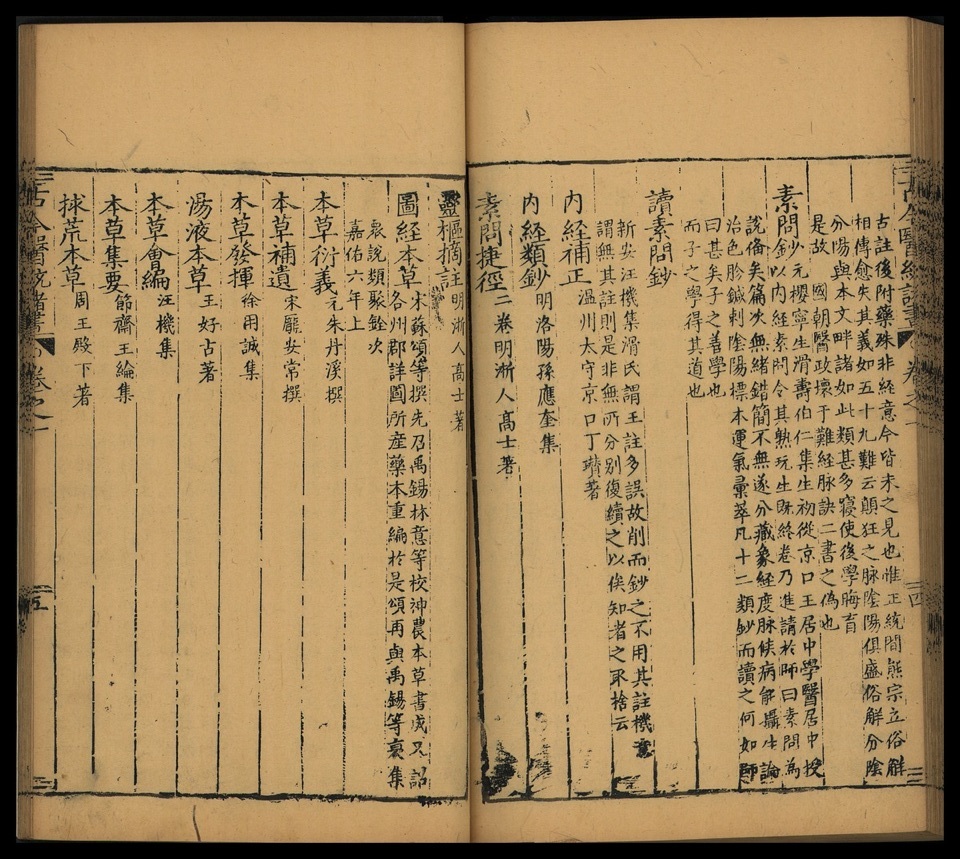 古註後附藥殊非經意今皆未之見也惟正統間熊宗立俗解
相傳愈失其義如五十九難云顛狂之脉陰陽俱盛俗解分陰
分陽與本文畔諸如此類甚多寖使後學晦盲
是故 國朝醫政壞于難經脉訣二書之偽也
素問鈔元櫻寧生滑壽伯仁集生初從京口王居中學醫居中授
以內經素問令其熟玩生旣終卷乃進請於師曰素問為
說備矣篇次無緒錯簡不無遂分藏象經度脉候病能攝生論
治色脉鍼刺陰陽標本運氣彙萃凡十二類鈔而讀之何如師
曰甚矣子之善學也
而子之學得其道也
讀素問鈔
新安汪機集滑氏謂王註多誤故削而鈔之不用其註機意
謂無其註則是非無所分别復續之以俟知者之取捨云
內經補正
溫州太守京口丁瓚著
內經類鈔明洛陽孫應奎集
素問捷徑二卷明浙人高士著
靈樞摘註明浙人高士著
圖經本草宋蘇頌等撰先乃禹錫林意等校神農本草書成又詔
各州郡詳圖所產藥本重編於是頌再與禹錫等裒集
衆說類聚銓次
嘉佑六年上
本草衍義元朱丹溪撰
本草補遺宋龐安常撰
本草發揮徐用誠集
湯液本草王好古著
本草會編汪機集
本草集要節齋王綸集
捄荒本草周王殿下著
五
四
卷之一